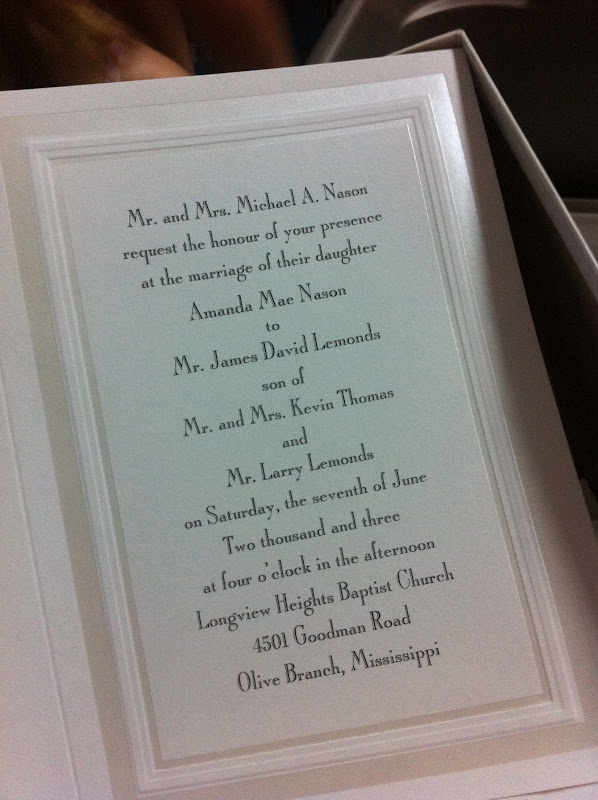 Mr. and Mrs. Michael A. Nason
request the honour of your presence
at the marriage of their daughter
Amanda Mae Nason
to
Mr. James David Lemonds
son of
Mr. and Mrs. Kevin Thomas
and
Mr. Larry Lemonds
on Saturday, the seventh of June
Two thousand and three
at four o'clock in the afternoon
Longview Heights Baptist Church
4501 Goodman Road
Olive Branch, Mississippi